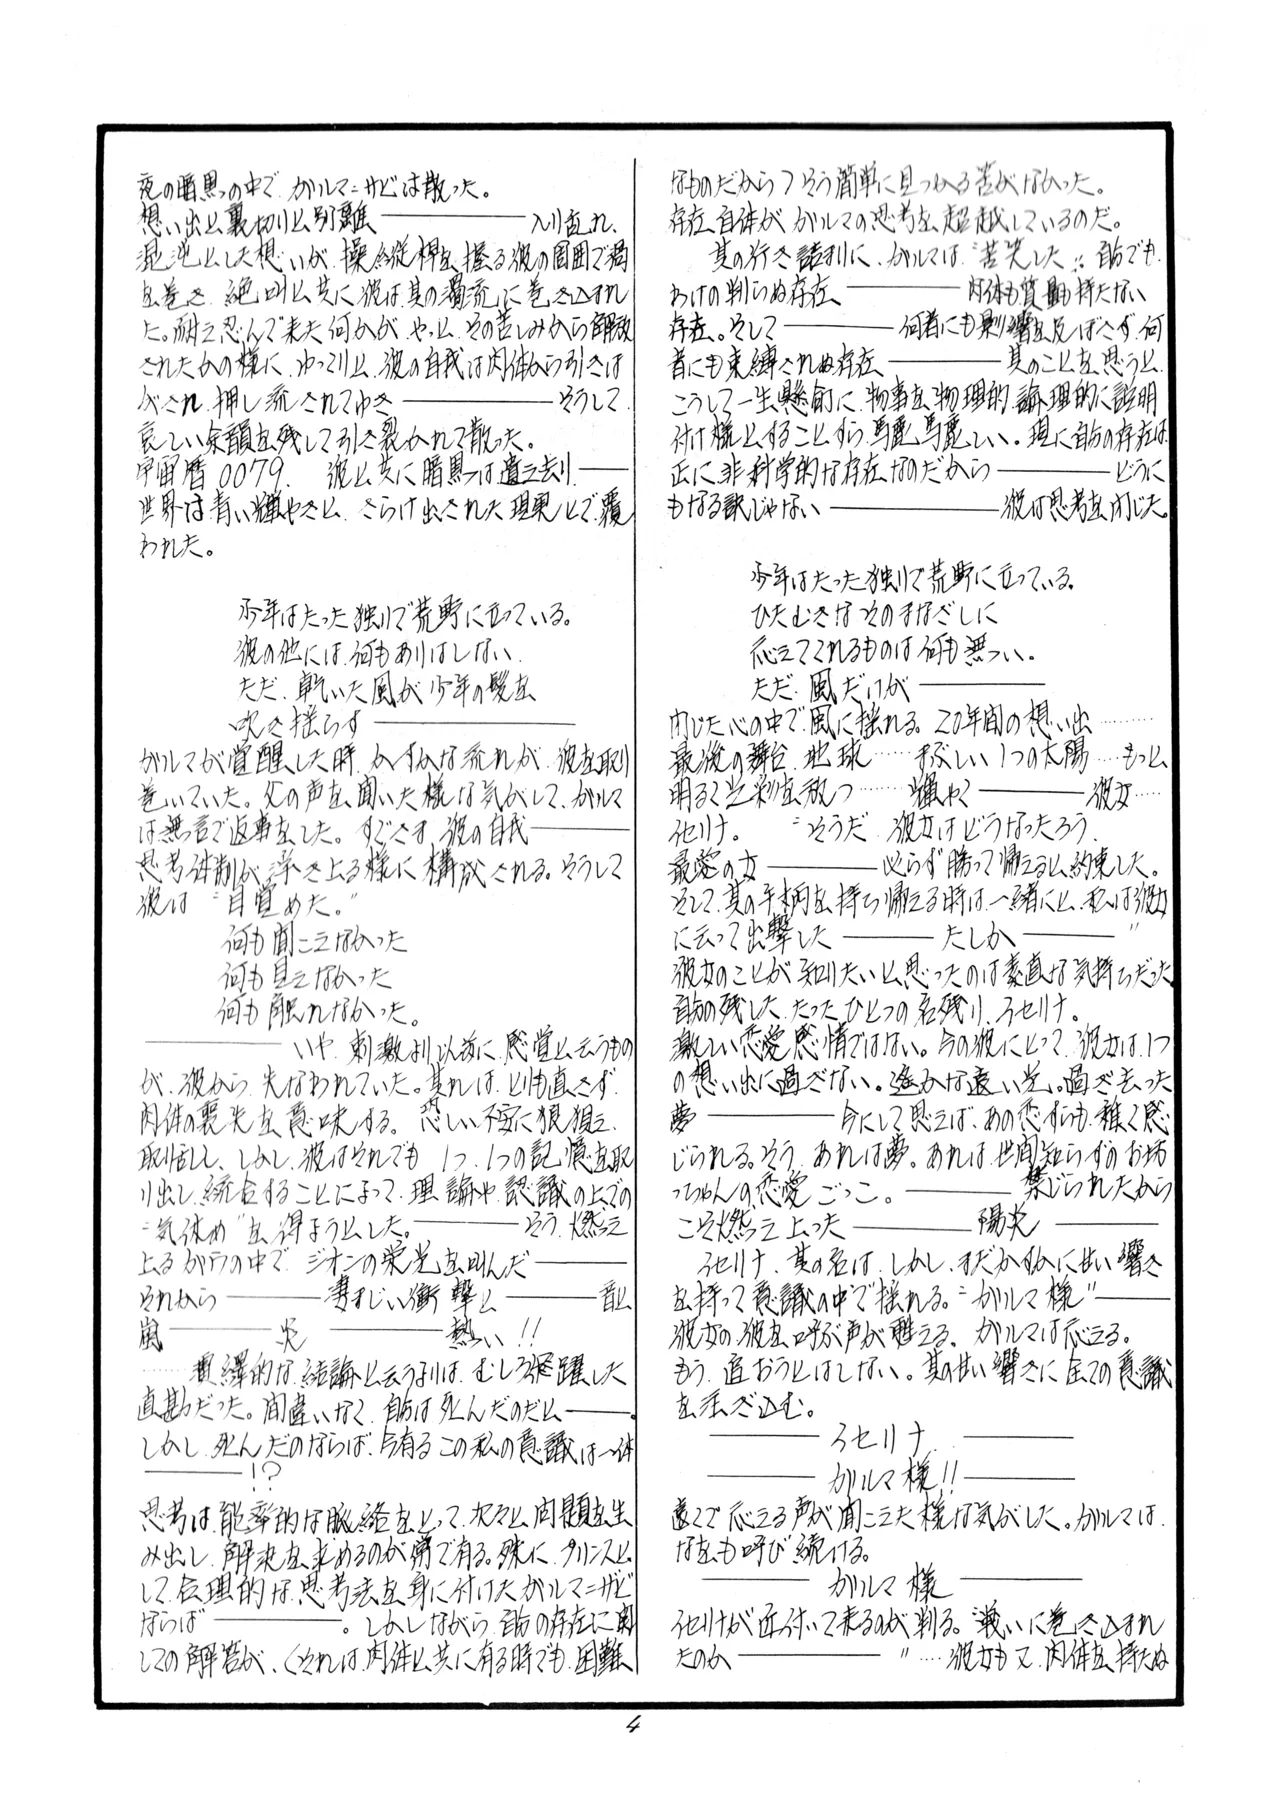 夜の暗黒の中で、ガルマ=ザビは散った。
想い出と裏切りと別離――――入り乱れ、
混沌とした想いが、操縦桿を握る彼の周囲で渦
を巻き、絶叫と共に彼は、其の濁流に巻き込まれ
た。耐え忍んで来た何かが、やっと、その苦しみから解放
されたかの様に、ゆっくりと、彼の自我は肉体から引きは
がされ、押し流されてゆき――――そうして、
哀しい余韻を残して引き裂かれて散った。
宇宙暦0079. 彼と共に暗黒は遺え去り――
世界は青い輝やきと、さらけ出された現実とで、覆
われた。
少年はたった独りで荒野に立っている。
彼の他には、何もありはしない.
ただ、乾いた風が、少年の髪を
吹き揺らす――――
ガルマが覚醒した時、かすかな流れが、彼を取り
巻いていた。父の声を聞いた様な気がして、ガルマ
は無言で返事をした。すぐさま、彼の自我――
思考体制が浮き上る様に構成される。そうして
彼は“目覚めた。”
何も聞こえなかった
何も見えなかった
何も触れなかった。
――――いや、刺激より以前に、感覚と云うもの
が、彼から、失なわれていた。其れは、とりも直さず、
肉体の喪失を意味する。恐しい不安に狼狽え、
取り乱し、しかし、彼はそれでも1つ、1つの記憶を取
り出し、統合することによって、理論や、認識の上での
“気休め”を得ようとした。――――そう、燃え
上るガウの中で、ジオンの栄光を叫んだ――
それから――――凄まじい衝撃と――――音と
嵐――――炎――――熱い!!
……演繹的な結論と云うよりは、むしろ飛躍した
直勘だった。間違いなく、自分は死んだのだと――。
しかし、死んだのならば、今有るこの私の意識は一体
――――!?
思考は、能率的な脈絡をとって、次々と、問題を生
み出し、解決を求めるのが常で有る。殊に、プリンスと
して、合理的な思考法を身に付けたガルマ=ザビ
ならば――――。しかしながら、自分の存在に関
しての解答が、(それは、肉体と共に有る時でも、困難
なものだから)そう簡単に見つかる筈がなかった。
存在自体が、ガルマの思考を、超越しているのだ。
其の行き詰まりに、ガルマは“苦笑した”。自分でも、
わけの判らぬ存在――――肉体も質量も持たない
存在。そして――――何者にも影響を及ぼさず、何
者にも束縛されぬ存在――――其のことを思うと、
こうして一生懸命に、物事を物理的、論理的に説明
付け様とすることすら、馬鹿馬鹿しい。現に自分の存在は、
正に、非科学的な存在なのだから――――どうに
もなる訳じゃない――――彼は思考を閉じた。
少年はたった独りで荒野に立っている。
ひたむきなそのまなざしに
応えてくれるものは何も無い。
ただ、風だけが――――
閉じた心の中で、風に揺れる。20年間の想い出……
最後の舞台、地球……まぶしい1つの太陽……もっと
明るく光彩を放つ……輝やく――――彼女……
イセリナ。“そうだ、彼女はどうなったろう、
最愛の女――――必らず勝って帰えると、約束した。
そして、其の手柄を持ち帰える時は、一緒にと、私は彼女
に云って出撃した――――たしか――――”
彼女のことが知りたいと、思ったのは素直な気持ちだった。
自分の残した、たったひとつの名残り、イセリナ。
激しい恋愛感情ではない。今の彼にとって、彼女は、1つ
の想い出に過ぎない。遥かな遠い光。過ぎ去った
夢――――今にして思えば、あの恋すらも稚く感
じられる。そう、あれは夢。あれは、世間知らずのお坊
っちゃんの恋愛ごっこ。――――禁じられたから
こそ燃え上った――――陽炎――――
イセリナ、其の名は、しかし、まだかすかに甘い響き
を持って、意識の中で揺れる。“ガルマ様”――
彼女の彼を呼ぶ声が甦える。ガルマは応える。
もう、追おうとはしない。其の甘い響きに、全ての意識
を注ぎ込む。
――――イセリナ.――――
――――ガルマ様!!――――
遠くで応える声が聞こえた様な気がした。ガルマは、
なをも呼び続ける。
――――ガルマ様――――
イセリナが近付いて来るのが判る。“戦いに巻き込まれ
たのか――――”……彼女も又、肉体を持たぬ
4